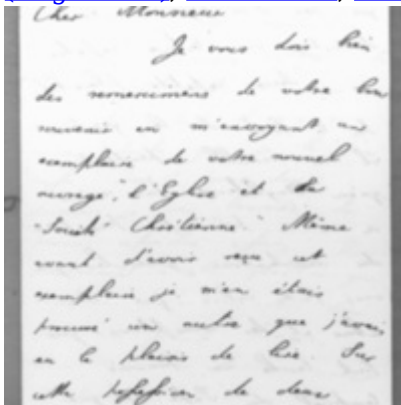 Cher Monsieur
Je vous dois bien
des remerciemens de votre bon
souvenir en m'envoyant un
exemplaire de votre nouvel
ouvrage, "l'Eglise et la
"Société Chrétienne" Même
avant d'avoir reçu cet
exemplaire je m'en étais
procuré un autre que j'avais
eu le plaisir de lire. Sur
cette de deux